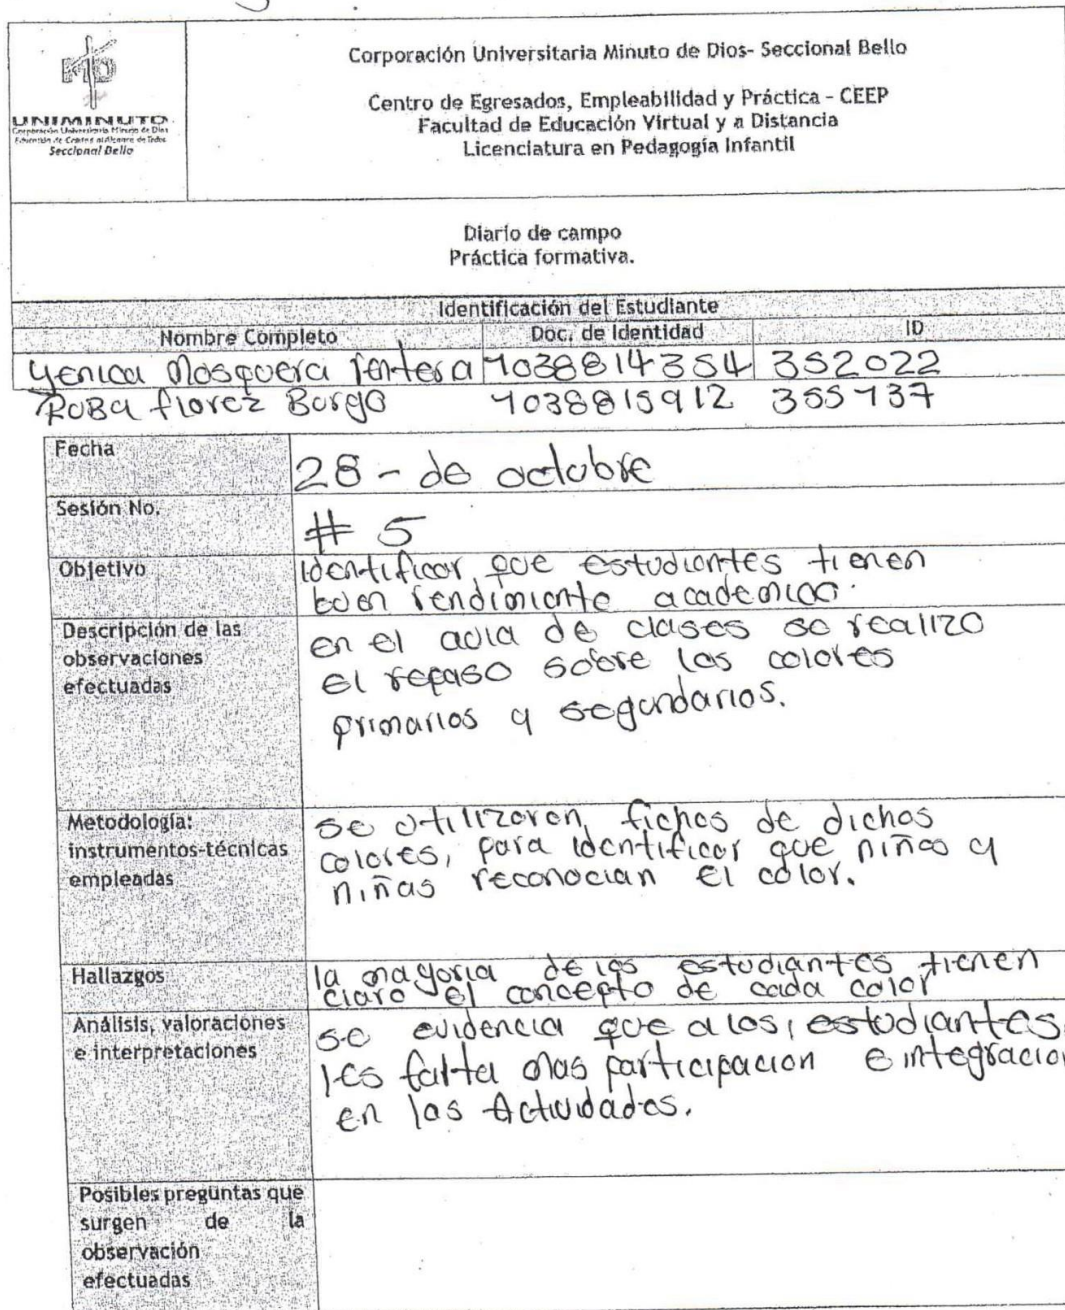 UNIMINUTO
Corporación Universitaria Minuto de Dios
Educación de Calidad al Alcance de Todos
Seccional Bello
Corporación Universitaria Minuto de Dios- Seccional Bello
Centro de Egresados, Empleabilidad y Práctica - CEEP
Facultad de Educación Virtual y a Distancia
Licenciatura en Pedagogía Infantil
Diario de campo
Práctica formativa.
Identificación del Estudiante
Nombre Completo Doc. de Identidad ID
Yenica Mosquera Rentera 1038814354 352022
Rosa florez Borgo 1038815912 355137
Fecha
28 - de octubre
Sesión No.
# 5
Objetivo
identificar que estudiantes tienen
buen rendimiento academico.
Descripción de las
observaciones
efectuadas
en el aula de clases se realizo
el repaso sobre los colores
primarios y segundarios.
Metodología:
instrumentos-técnicas
empleadas
se utilizaron fichas de dichos
colores, para identificar que niños y
niñas reconocian el color.
Hallazgos
la mayoria de los estudiantes tienen
claro el concepto de cada color
Análisis, valoraciones
e interpretaciones
se evidencia que a los, estudiantes
les falta mas participacion e integracion
en las Actividades.
Posibles preguntas que
surgen de la
observación
efectuadas